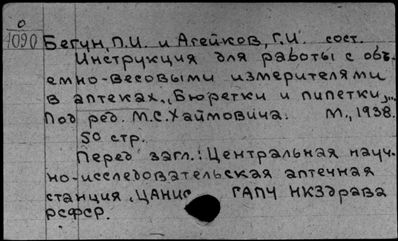 0
4090
Бегун, П.И. и Агейков, Г.И. сост.
Инструкция для работы с объ-
емно-весовыми измерителями
в аптеках. „Бюретки и пипетки„.
Под ред. М.С. Хаймовича. М., 1938.
50 стр.
Перед загл.: Центральная науч-
но-исследовательская аптечная
станция „ЦАНИС ГАПЧ НКЗдрава
РСФСР.